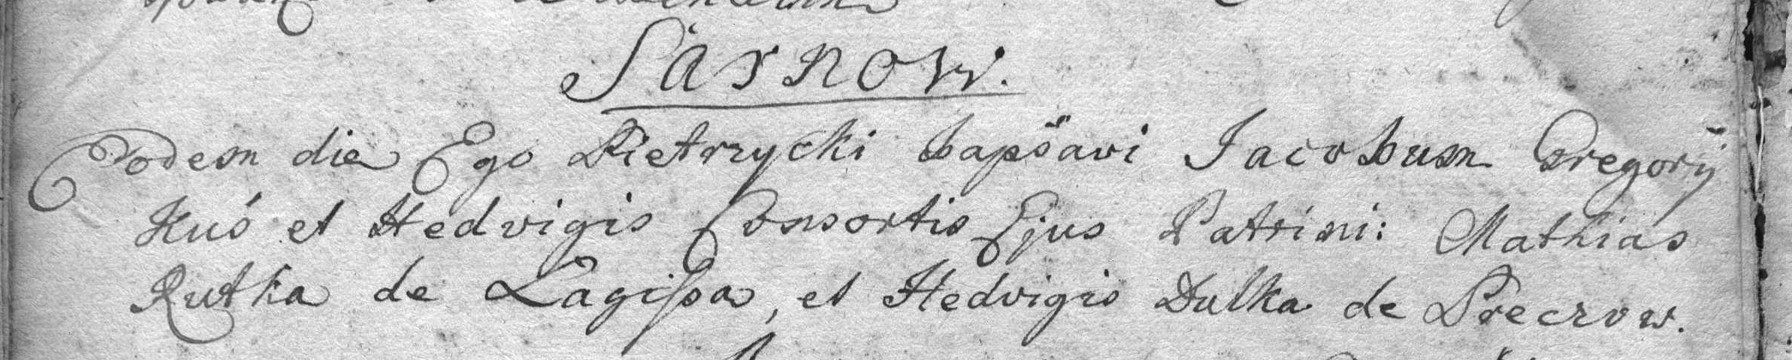 Sarnow.
Eodem die Ego Pietrzycki bapsavi Jacobum Gregorij
Kuś et Hedvigis Consortis Ejus Patrini: Mathias
Rutka de Lagissa, et Hedvigis Dulka de Preczow.